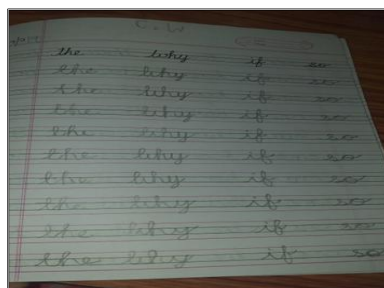 C.W
the why if so
the why if so
the why if so
the why if so
the why if so
the why if so
the why if so
the why if so
the why if so
the why if so